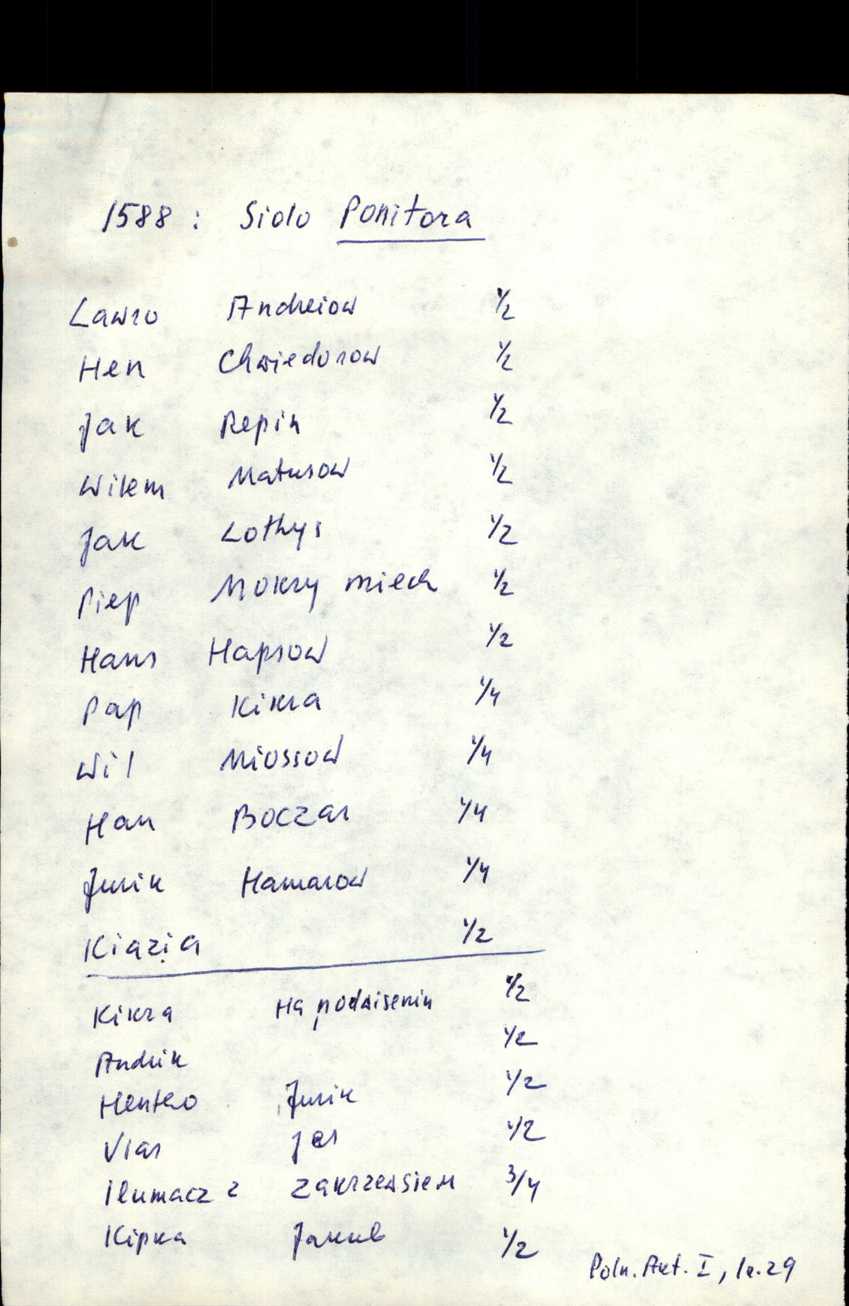 1588 : Siolo Ponitora
Lawro Andreiow 1/2
Hen Chwiedorow 1/2
Jak Repin 1/2
Wilem Matusow 1/2
Jak Lothys 1/2
Piep Mokry miech 1/2
Hans Hapsow 1/2
Pap Kikra 1/4
Wil Miossow 1/4
Han Boczar 1/4
Jurik Hamarow 1/4
Kiazia 1/2
Kikra 1/2
Andrik 1/2
Jurik 1/2
Vlas 1/2
Tlumacz z 3/4
Kipka Jakub 1/2
Poln. Akt. I, lk. 29